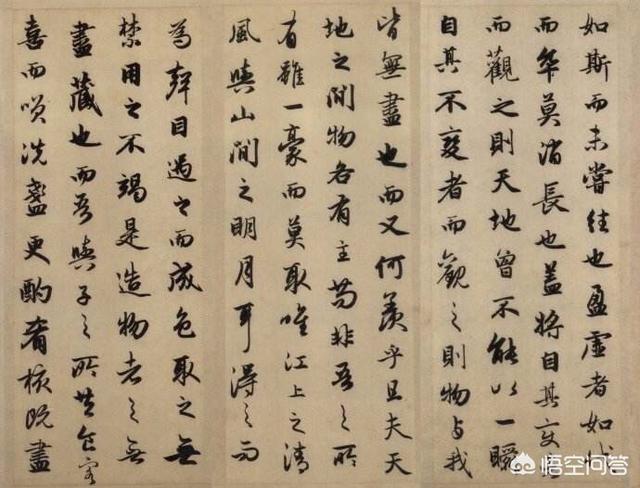 如斯而未嘗往也盈虛者如彼
而卒莫消長也蓋將自其变者
而觀之則天地曾不能以一瞬
自其不變者而觀之則物与我
皆無盡也而又何羨乎且夫天
地之間物各有主苟非吾之所
有雖一豪而莫取唯江上之清
風與山間之明月耳得之而
為聲目遇之而成色取之無
禁用之不竭是造物者之無
盡藏也而吾與子之所共食客
喜而笑洗盞更酌肴核既盡
悟空问答